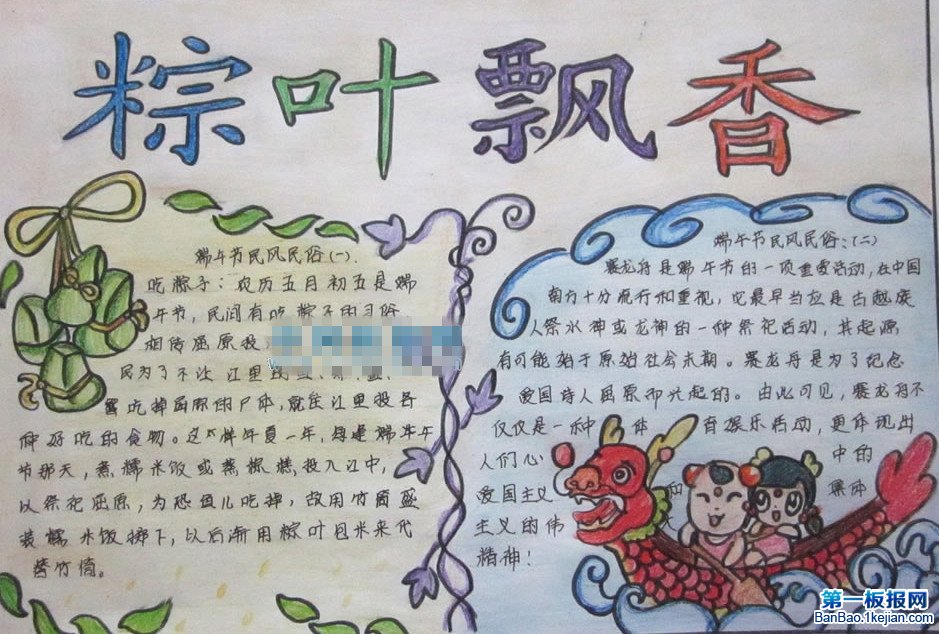 粽叶飘香
端午节民风民俗(一)
吃粽子:农历五月初五是端
午节,民间有吃粽子的习俗
相传屈原投
民为了不让江里的
吃掉屈原的尸体,就往江里投各
种好吃的食物。这样年复一年,每逢端午
节那天,煮糯米饭或蒸粽糕投入江中,
以祭祀屈原,为恐鱼儿吃掉,故用竹筒盛
装糯米饭掷下,以后渐用粽叶包米来代
替竹筒。
端午节民风民俗:(二)
赛龙舟是端午节的一项重要活动,在中国
南方十分流行和重视,它最早当应是古越族
人祭水神或龙神的一种祭祀活动,其起源
有可能始于原始社会末期。赛龙舟是为了纪念
爱国诗人屈原而兴起的。由此可见,赛龙舟不
仅仅是一种体育娱乐活动,更体现出
人们心中的
爱国主义和集体
主义的伟大
精神!
第一板报网
BanBao.1kejian.com